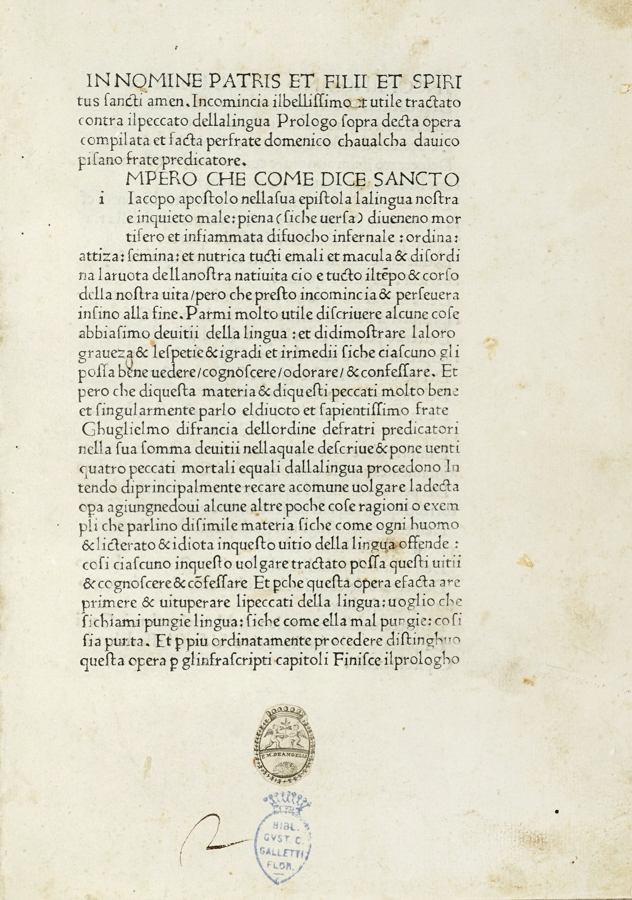 IN NOMINE PATRIS ET FILII ET SPIRI
tus ſancti amen. Incomincia ilbelliſſimo et utile tractato
contra ilpeccato dellalingua Prologo ſopra decta opera
compilata et facta perfrate domenico chaualcha dauico
piſano frate predicatore.
MPERO CHE COME DICE SANCTO
i Iacopo apoſtolo nellaſua epiſtola lalingua noſtra
e inquieto male: piena (ſiche uerſa) diueneno mor
tifero et infiammata difuocho infernale : ordina:
attiza: ſemina: et nutrica tucti emali et macula & diſordi
na laruota dellanoſtra natiuita cio e tucto iltēpo & corſo
della noſtra uita/pero che preſto incomincia & perſeuera
inſino alla fine. Parmi molto utile diſcriuere alcune coſe
abbiaſimo deuitii della lingua : et didimoſtrare laloro
graueza & leſpetie & igradi et irimedii ſiche ciaſcuno gli
poſſa bene uedere/cognoſcere/odorare/& confeſſare. Et
pero che diqueſta materia & diqueſti peccati molto bene
et ſingularmente parlo eldiuoto et ſapientiſſimo frate
Ghuglielmo difrancia dellordine defratri predicatori
nella ſua ſomma deuitii nellaquale deſcriue & pone uenti
quatro peccati mortali equali dallalingua procedono In
tendo diprincipalmente recare acomune uolgare ladecta
opa agiungnedoui alcune altre poche coſe ragioni o exem
pli che parlino diſimile materia ſiche come ogni huomo
& licterato & idiota inqueſto uitio della lingua offende :
coſi ciaſcuno inqueſto uolgare tractato poſſa queſti uitii
& cognoſcere & cōfeſſare Et pche queſta opera efacta are
primere & uituperare lipeccati della lingua: uoglio che
ſichiami pungie lingua: ſiche come ella mal pungie: coſi
ſia punta. Et ꝑ piu ordinatamente procedere diſtinghuo
queſta opera ꝑ glinfraſcripti capitoli Finiſce ilprologho
BIBL.
GVST. C.
GALLETTI
FLOR.